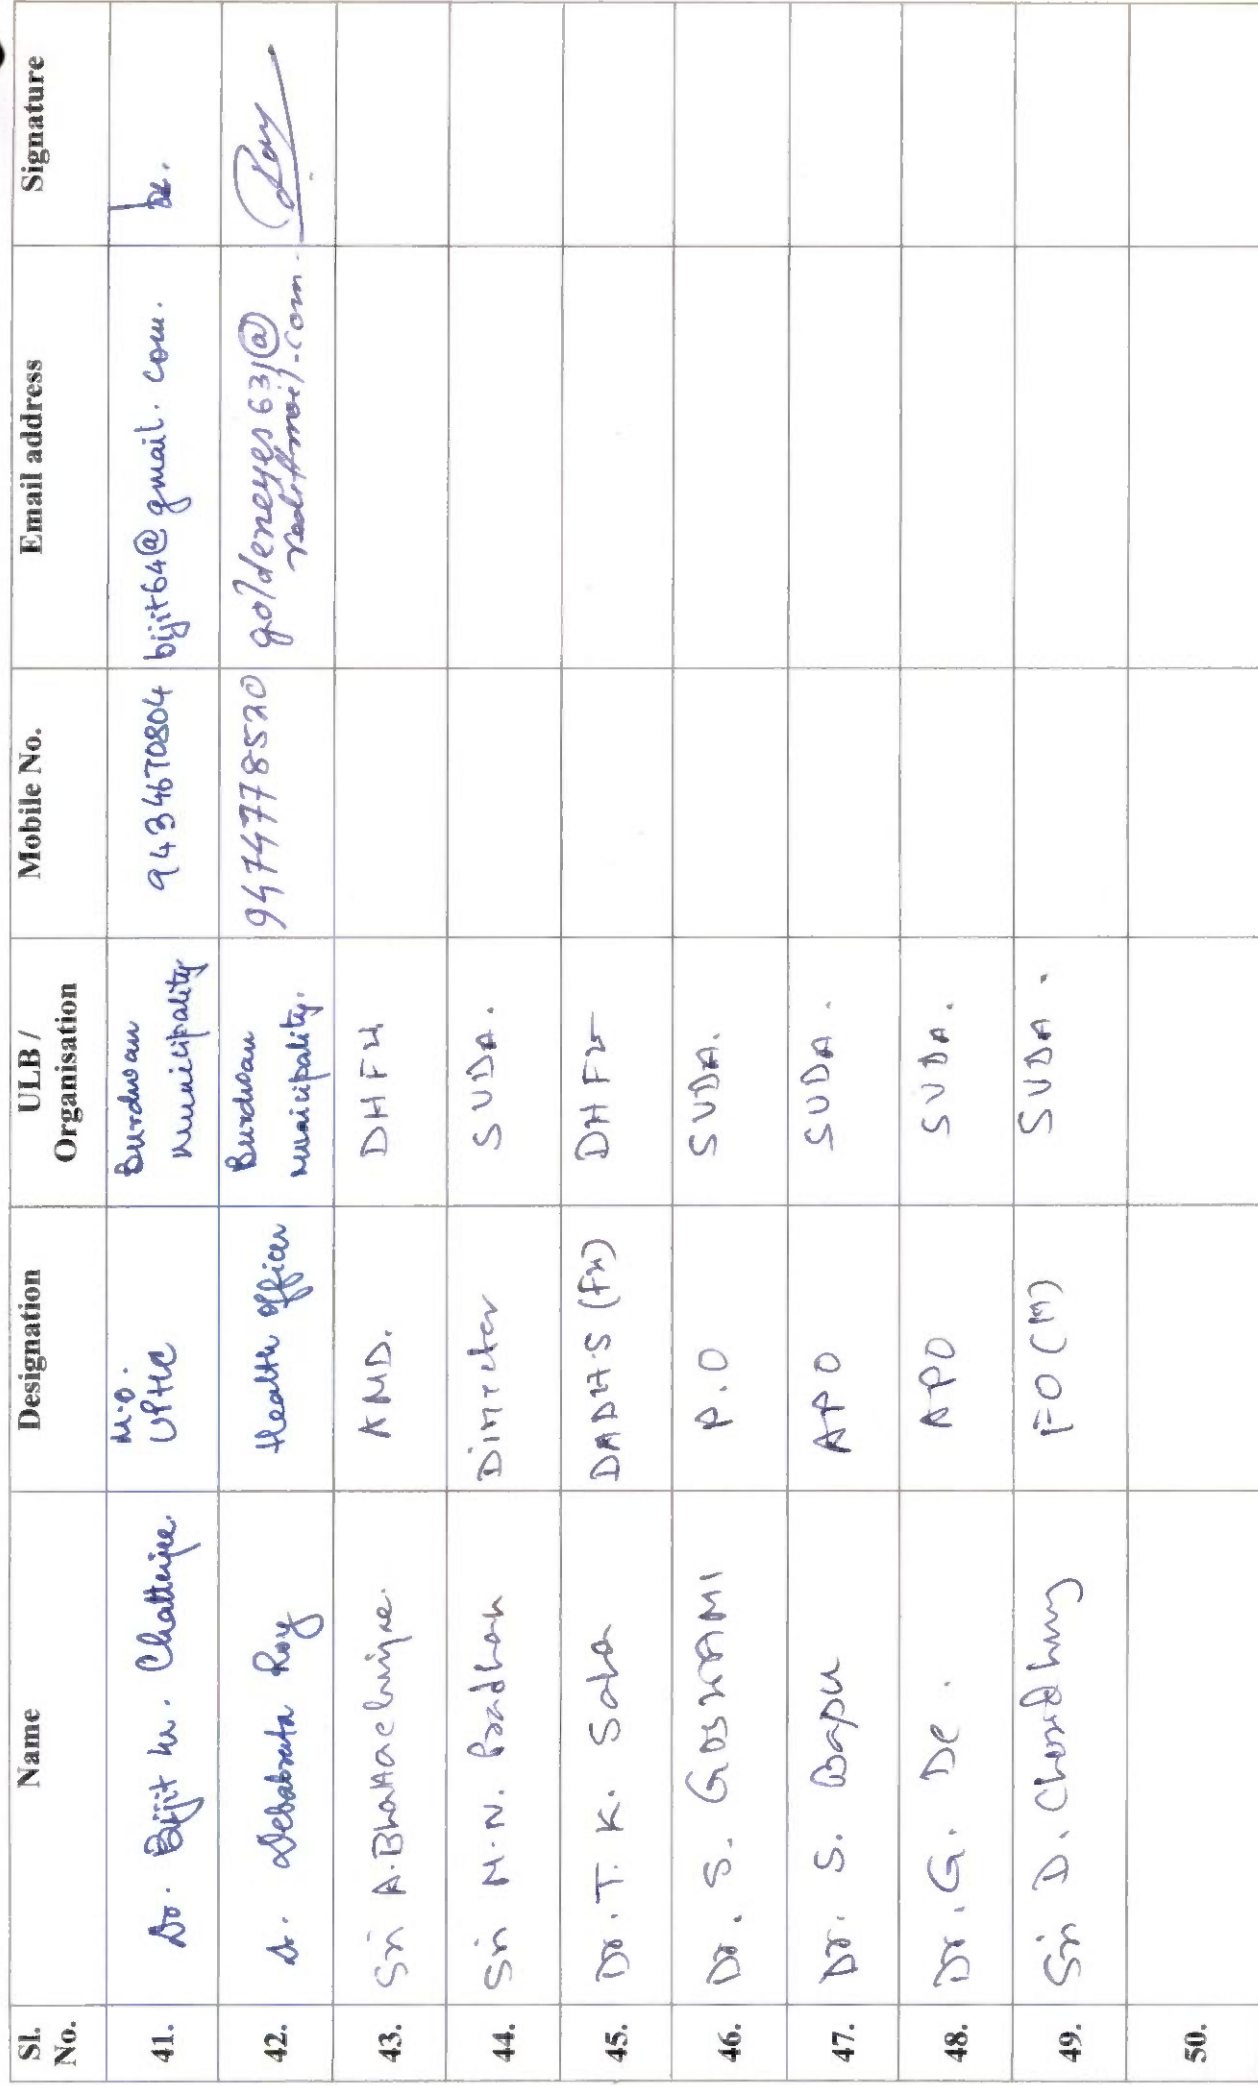 Sl. No. Name Designation ULB / Organisation Mobile No. Email address Signature
41. Dr. Bijit Kr. Chatterjee. M.O. UPHC Burdwan Municipality 9434670804 bijit64@gmail.com.
42. Dr. Debabrata Roy Health Officer Burdwan Municipality. 9474778520 goldeneyes631@rediffmail.com. Roy
43. Sri A. Bhattacharjee. AMD. DHFW
44. Sri M.N. Pradhan Director SUDA.
45. Dr. T. K. Saha DADHS (FW) DHFW
46. Dr. S. GOSWAMI P.O SUDA.
47. Dr. S. Bapu APO SUDA.
48. Dr. G. De. APO SUDA.
49. Sri D. Chowdhury FO (M) SUDA.
50.